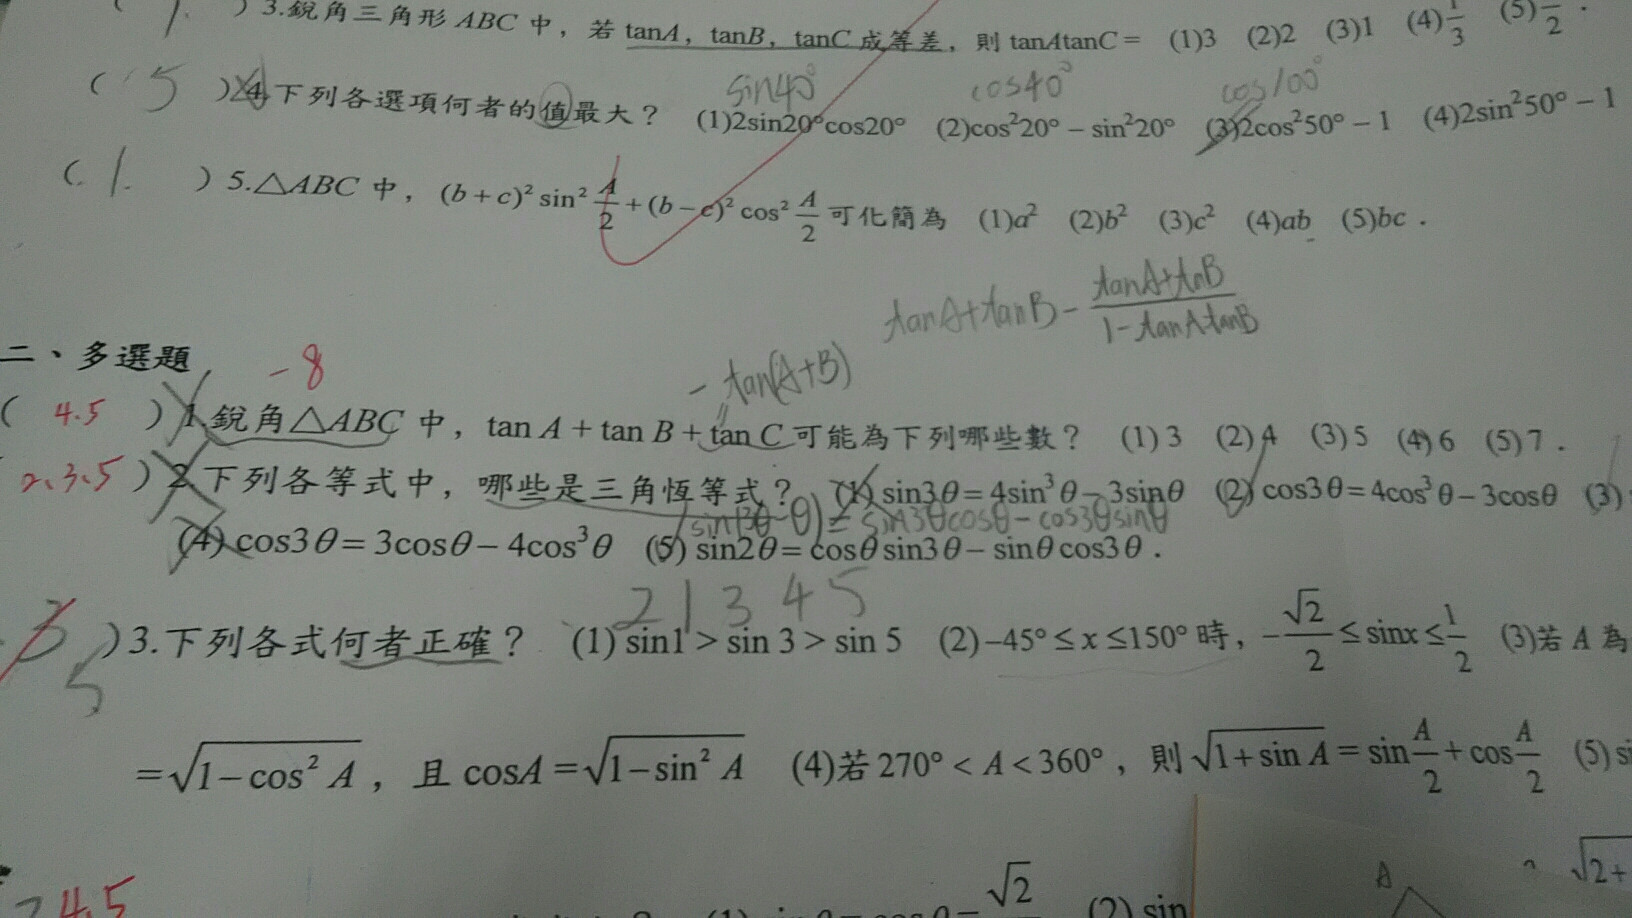 ( 1. ) 3.銳角三角形 ABC 中，若 tanA，tanB，tanC 成等差，則 tanAtanC = (1)3 (2)2 (3)1 (4)1/3 (5)1/2．
sin40° cos40° cos100°
( 5 ) 4.下列各選項何者的值最大？ (1)2sin20°cos20° (2)cos²20° − sin²20° (3)2cos²50° − 1 (4)2sin²50° − 1
( 1. ) 5.△ABC 中，(b + c)² sin² A/2 + (b − c)² cos² A/2 可化簡為 (1)a² (2)b² (3)c² (4)ab (5)bc．
tanA+tanB − (tanA+tanB)/(1−tanAtanB)
二、多選題 −8
− tan(A+B)
( 4.5 ) 1.銳角△ABC 中，tan A + tan B + tan C 可能為下列哪些數？ (1) 3 (2) 4 (3) 5 (4) 6 (5) 7．
2.3.5 ) 2.下列各等式中，哪些是三角恆等式？ (1) sin3θ = 4sin³θ − 3sinθ (2) cos3θ = 4cos³θ − 3cosθ (3)
sin(3θ−θ) = sin3θcosθ − cos3θsinθ
(4) cos3θ = 3cosθ − 4cos³θ (5) sin2θ = cosθ sin3θ − sinθ cos3θ．
2 1 3 4 5
) 3.下列各式何者正確？ (1) sin1 > sin 3 > sin 5 (2) −45° ≤ x ≤ 150° 時，−√2/2 ≤ sinx ≤ 1/2 (3)若 A 為
5
= √(1 − cos² A)，且 cosA = √(1 − sin² A) (4)若 270° < A < 360°，則 √(1 + sin A) = sin A/2 + cos A/2 (5) si
4.5 √2 (2) sin A √2+